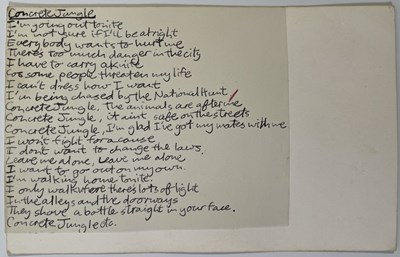 Concrete Jungle
I'm going out tonite
I'm not sure if I'll be alright
Everybody wants to hurt me
Theres too much danger in the city
I have to carry a knife
Cos some people threaten my life
I can't dress how I want
I'm being chased by the National Hunt
Concrete Jungle. The animals are after me
Concrete Jungle, it aint safe on the streets
Concrete Jungle, I'm glad I've got my mates with me
I wont fight for a cause
I dont want to change the laws.
Leave me alone, leave me alone
I want to go out on my own.
I'm walking home tonite.
I only walk where there's lots of light
In the alleys and the doorways
They shove a bottle straight in your face.
Concrete Jungle etc.